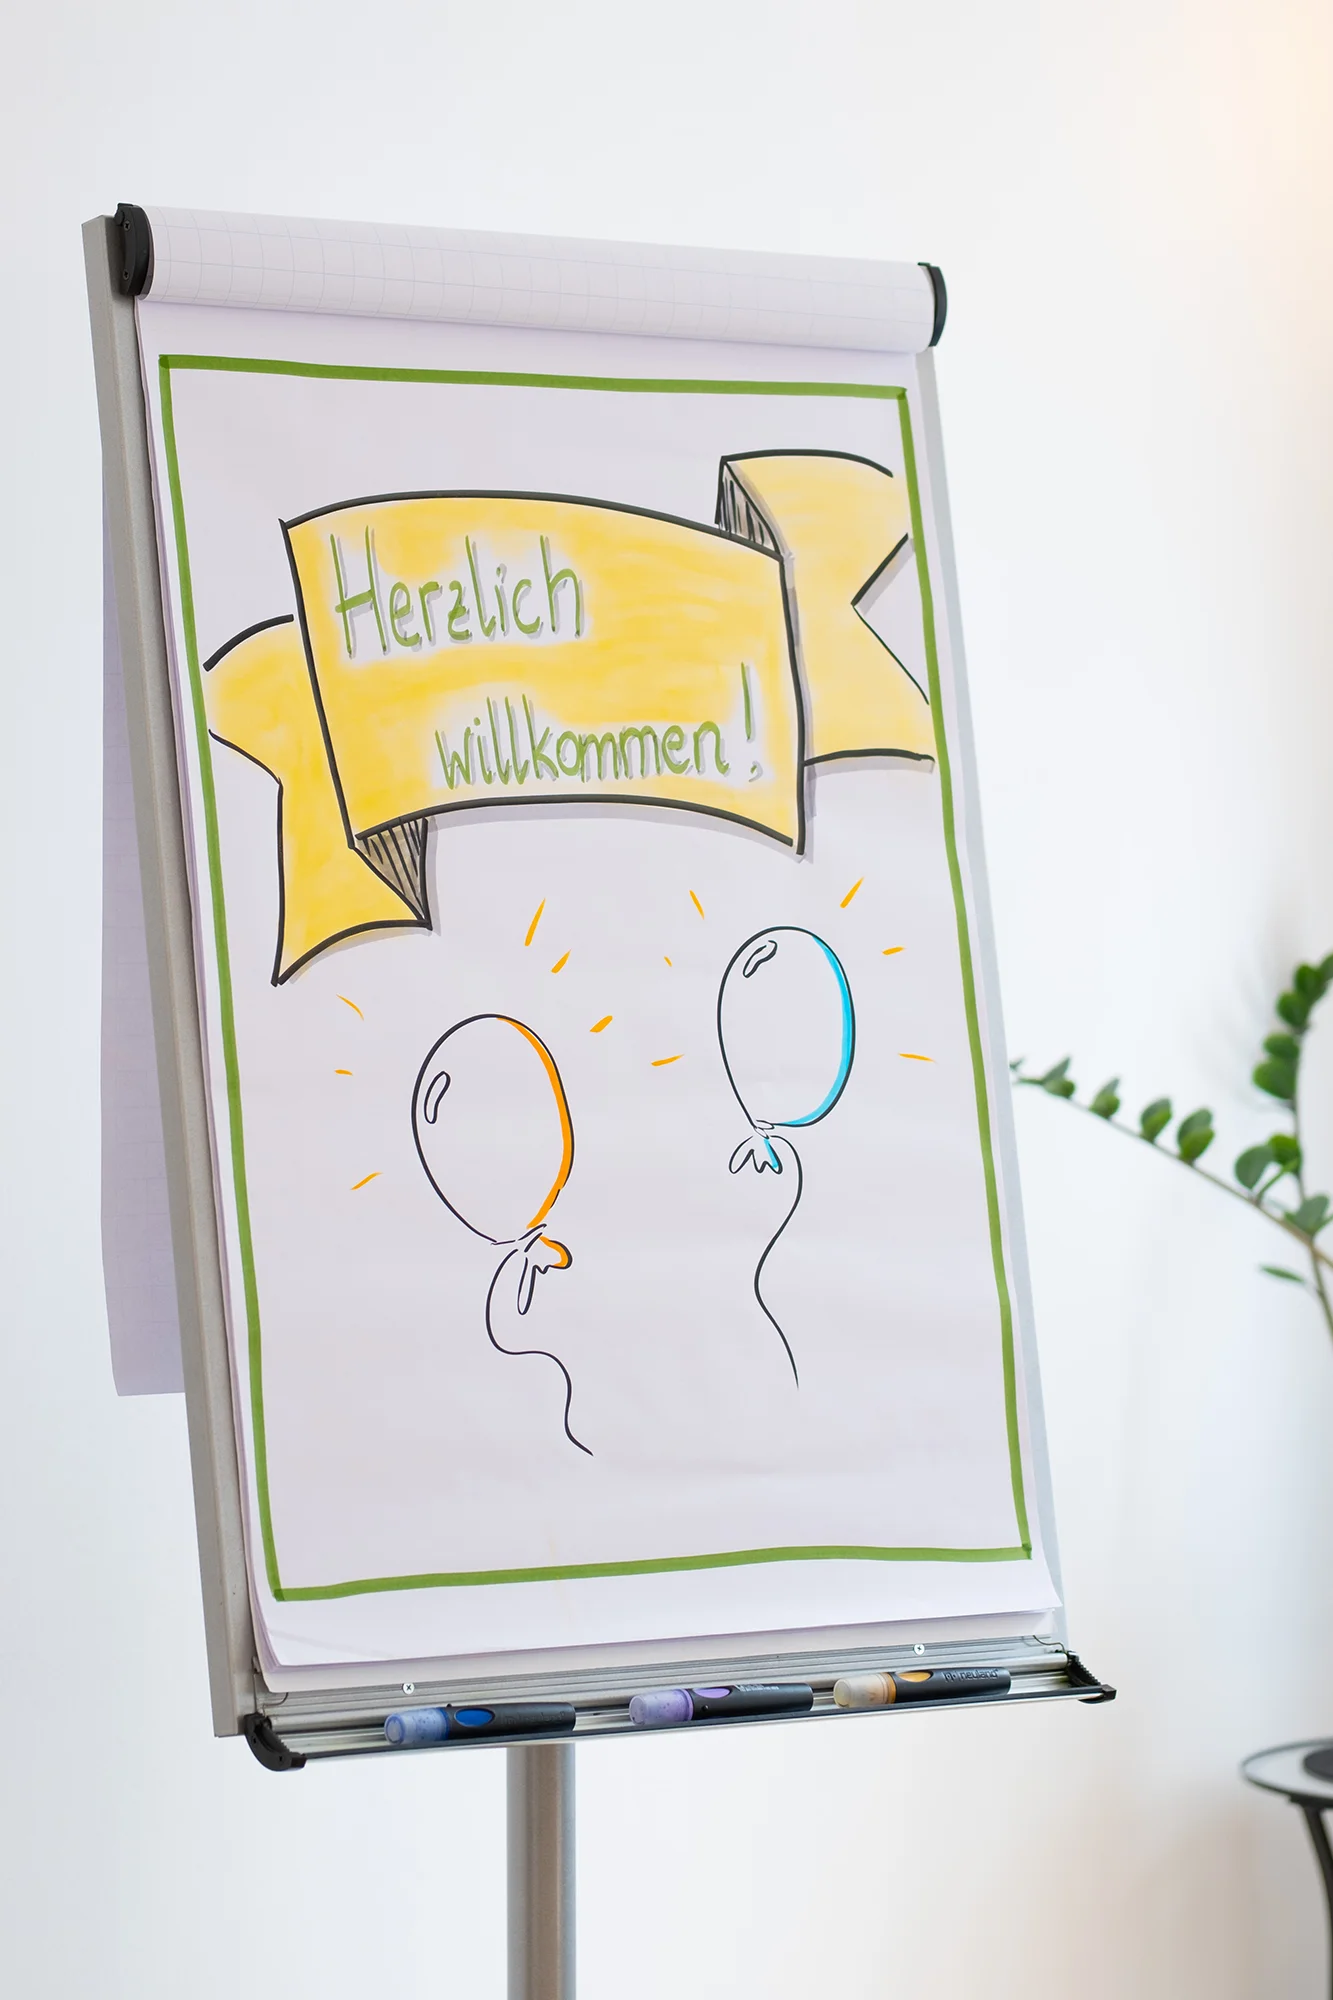 Herzlich
willkommen!
neuland